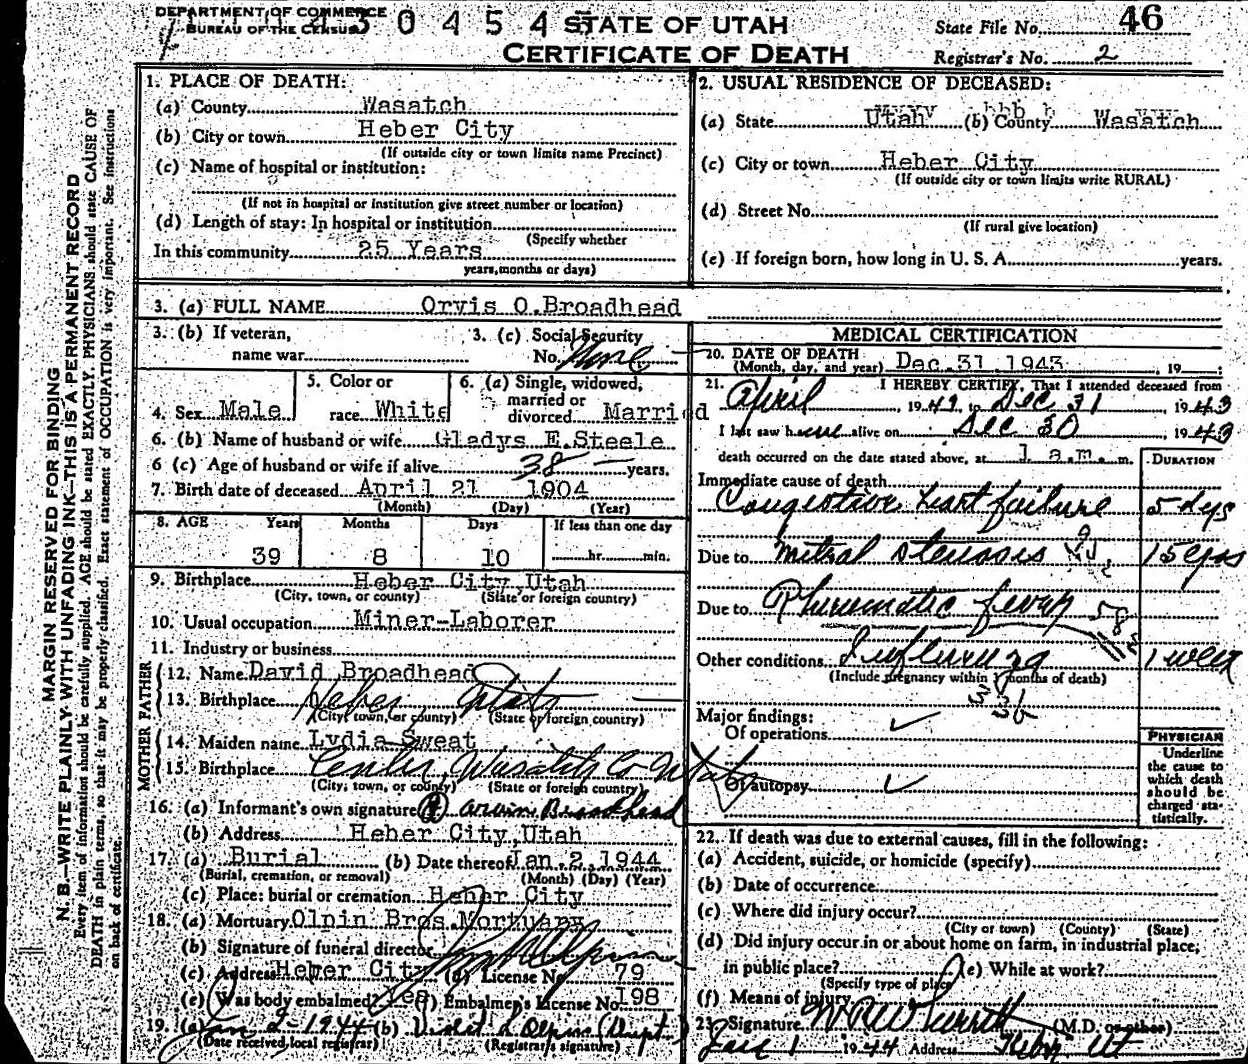 DEPARTMENT OF COMMERCE
BUREAU OF THE CENSUS
4 3 0 4 5 4 5
STATE OF UTAH
CERTIFICATE OF DEATH
State File No. 46
Registrar's No. 2
MARGIN RESERVED FOR BINDING
N. B.—WRITE PLAINLY WITH UNFADING INK—THIS IS A PERMANENT RECORD
Every item of information should be carefully supplied. AGE should be stated EXACTLY. PHYSICIANS should state CAUSE OF
DEATH in plain terms, so that it may be properly classified. Exact statement of OCCUPATION is very important. See instructions
on back of certificate.
1. PLACE OF DEATH:
(a) County Wasatch
(b) City or town Heber City
(If outside city or town limits name Precinct)
(c) Name of hospital or institution:
(If not in hospital or institution give street number or location)
(d) Length of stay: In hospital or institution
(Specify whether
In this community 25 Years
years, months or days)
2. USUAL RESIDENCE OF DECEASED:
(a) State Utah (b) County Wasatch
(c) City or town Heber City
(If outside city or town limits write RURAL)
(d) Street No.
(If rural give location)
(e) If foreign born, how long in U. S. A. years.
3. (a) FULL NAME Orvis O.Broadhead
3. (b) If veteran,
name war
3. (c) Social Security
No. None
4. Sex Male
5. Color or
race White
6. (a) Single, widowed,
married or
divorced Married
6. (b) Name of husband or wife Gladys E.Steele
6 (c) Age of husband or wife if alive 38 years.
7. Birth date of deceased April 21 1904
(Month) (Day) (Year)
8. AGE Years Months Days If less than one day
39 8 10 hr. min.
9. Birthplace Heber City Utah
(City, town, or county) (State or foreign country)
10. Usual occupation Miner-Laborer
11. Industry or business
FATHER
12. Name David Broadhead
13. Birthplace Heber Utah
(City, town, or county) (State or foreign country)
MOTHER
14. Maiden name Lydia Sweat
15. Birthplace Center, Wasatch Co Utah
(City, town, or county) (State or foreign country)
16. (a) Informant's own signature Broadhead
(b) Address Heber City,Utah
17. (a) Burial (b) Date thereof Jan.2,1944
(Burial, cremation, or removal) (Month) (Day) (Year)
(c) Place: burial or cremation Heber City
18. (a) Mortuary Olpin Bros.Mortuary
(b) Signature of funeral director
(c) Address Heber City (d) License No. 79
(e) Was body embalmed? Yes (f) Embalmer's License No. 198
19. (a) Jan 2-1944 (b)
(Date received, local registrar) (Registrar's signature)
MEDICAL CERTIFICATION
20. DATE OF DEATH
(Month, day, and year) Dec.31.1943 , 19
21. I HEREBY CERTIFY, That I attended deceased from
April , 19 to Dec 31 , 1943
I last saw h alive on Dec 30 , 1943
death occurred on the date stated above, at 1 a.m. m.
DURATION
Immediate cause of death
Congestive heart failure 5 dys
Due to mitral stenosis 15 yrs
Due to Rheumatic fever 58
Other conditions Influenza 1 week
(Include pregnancy within 3 months of death)
33b
Major findings:
Of operations ✓
Of autopsy ✓
PHYSICIAN
Underline
the cause to
which death
should be
charged sta-
tistically.
22. If death was due to external causes, fill in the following:
(a) Accident, suicide, or homicide (specify)
(b) Date of occurrence
(c) Where did injury occur?
(City or town) (County) (State)
(d) Did injury occur in or about home on farm, in industrial place,
in public place? (e) While at work?
(Specify type of place)
(f) Means of injury
23. Signature (M.D. or other)
1944 Address Heber Ut